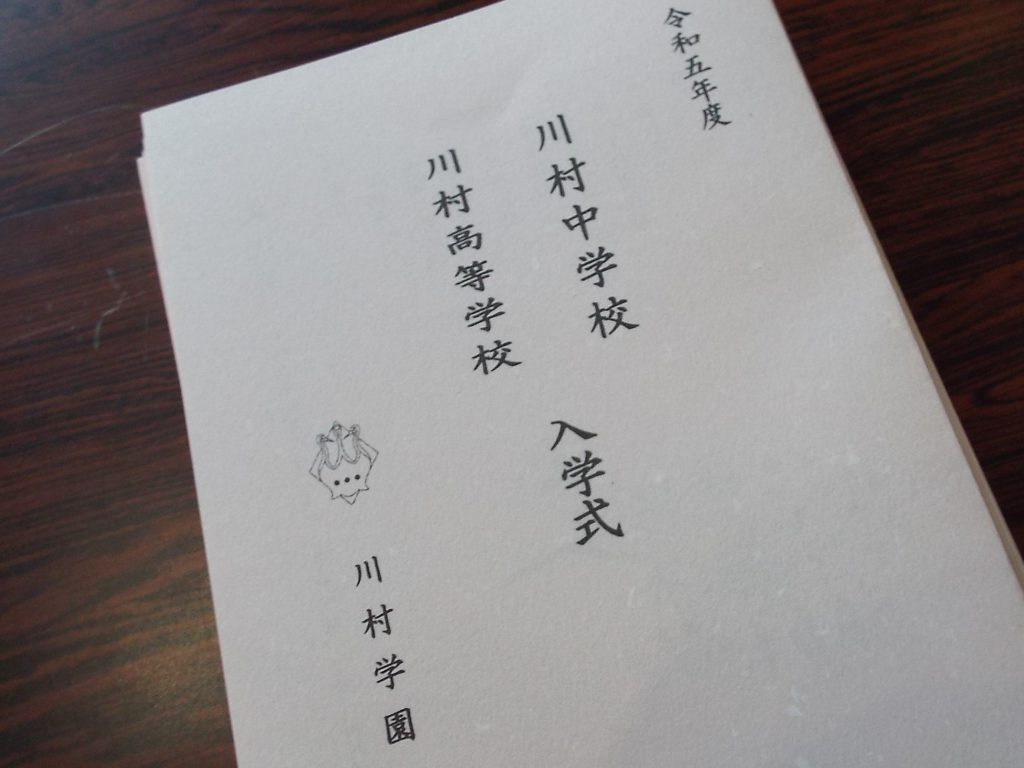 令和五年度
川村中学校
川村高等学校
入学式
川村学園